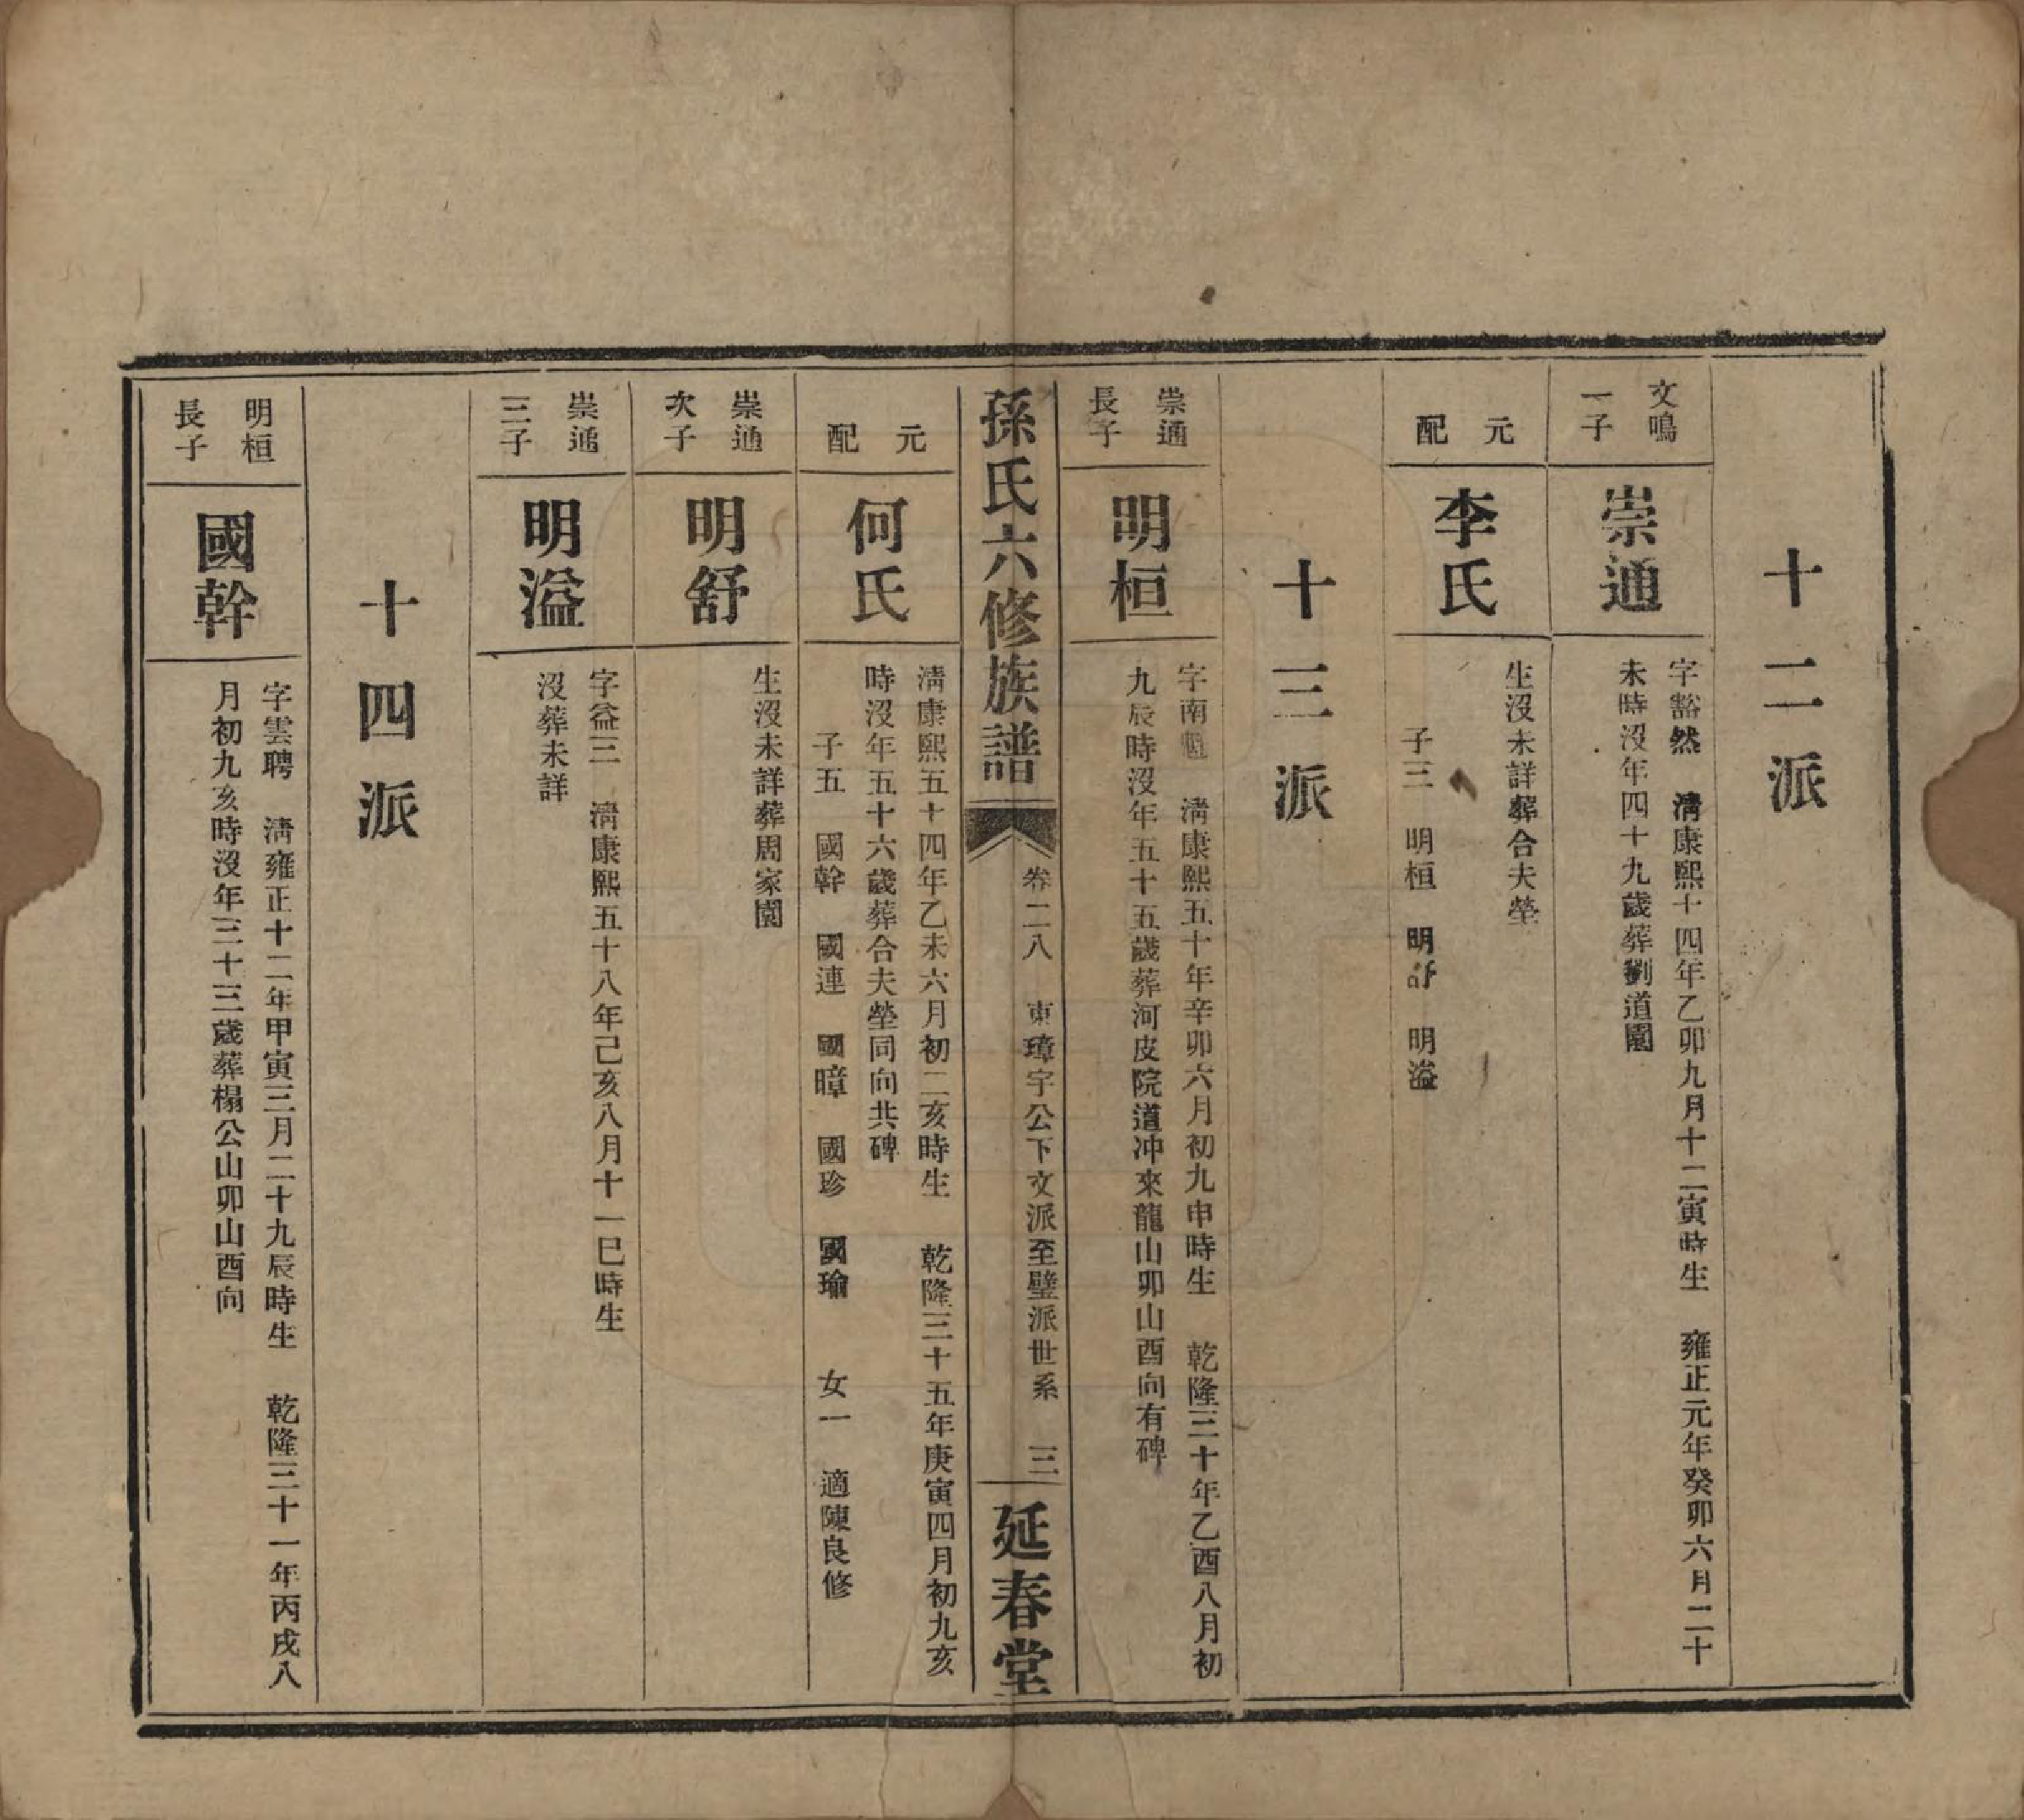 十二派
文鳴
一子
崇通
字豁然　淸康熙十四年乙卯九月十二寅時生　雍正元年癸卯六月二十
未時沒年四十九歲葬劉道園
元
配
李氏
生沒未詳葬合夫塋
子三　明桓　明舒　明溢
十三派
崇通
長子
明桓
字南魁　淸康熙五十年辛卯六月初九申時生　乾隆三十年乙酉八月初
九辰時沒年五十五歲葬河皮院道冲來龍山卯山酉向有碑
孫氏六修族譜
卷二八　東璋字公下文派至璧派世系　三
延春堂
元
配
何氏
淸康熙五十四年乙未六月初二亥時生　乾隆三十五年庚寅四月初九亥
時沒年五十六歲葬合夫塋同向共碑
子五　國幹　國連　國暲　國珍　國瑜　女一　適陳良修
崇通
次子
明舒
生沒未詳葬周家園
崇通
三子
明溢
字益三　淸康熙五十八年己亥八月十一巳時生
沒葬未詳
十四派
明桓
長子
國幹
字雲聘　淸雍正十二年甲寅三月二十九辰時生　乾隆三十一年丙戌八
月初九亥時沒年三十三歲葬榻公山卯山酉向